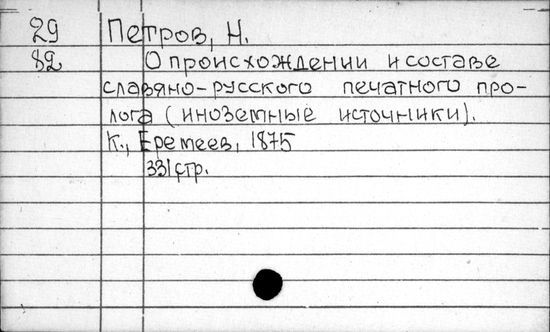 29 Петров, Н.
82 О происхождении и составе
славяно-русского печатного про-
лога (иноземные источники).
К., Еремеев, 1875
331 стр.